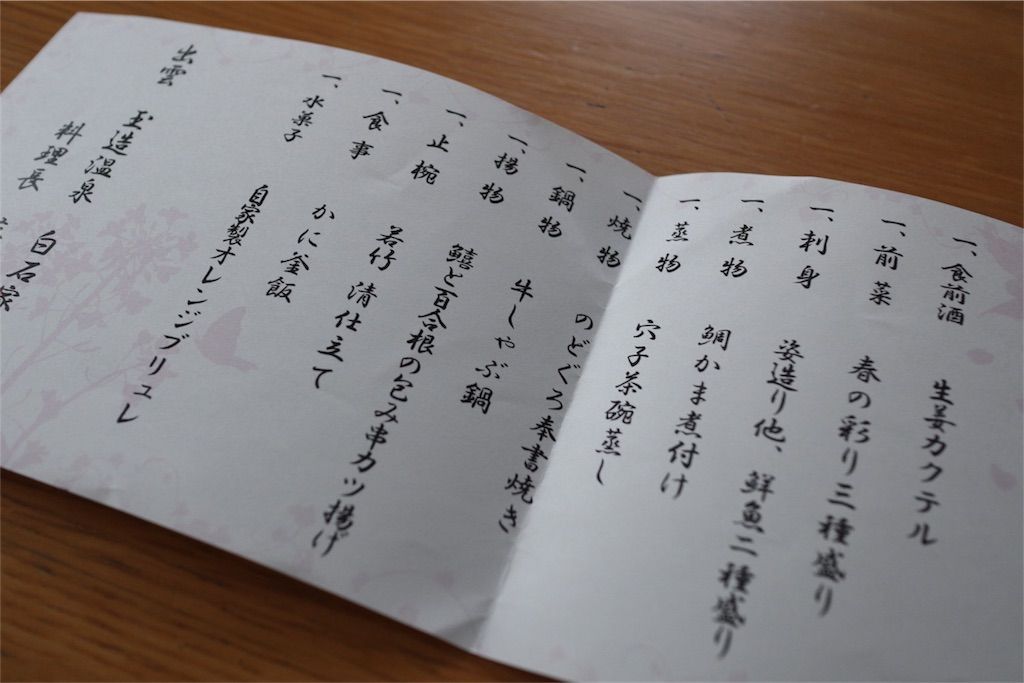 一、食前酒 生姜カクテル
一、前菜 春の彩り三種盛り
一、刺身 姿造り他、鮮魚二種盛り
一、煮物 鯛かま煮付け
一、蒸物 穴子茶碗蒸し
一、焼物 のどぐろ奉書焼き
一、鍋物 牛しゃぶ鍋
一、揚物 鱚と百合根の包み串カツ揚げ
一、止椀 若竹 清仕立て
一、食事 かに釜飯
一、水菓子 自家製オレンジブリュレ
出雲 玉造温泉 白石家
料理長